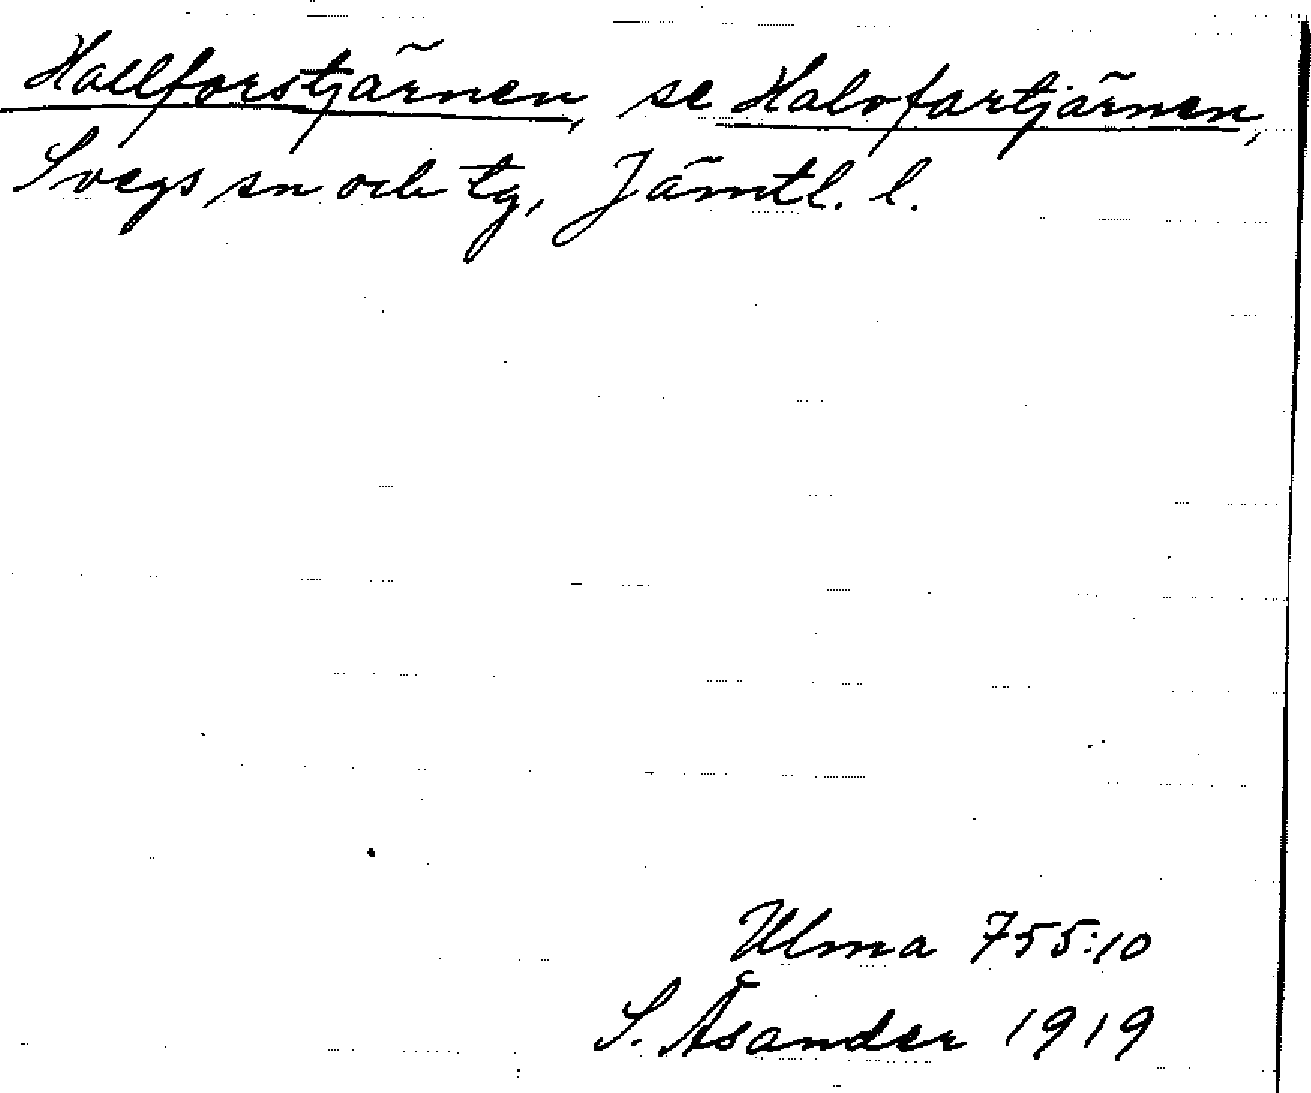 Hallforstjärnen, se Halvfartjärnen,
Svegs sn och tg, Jämtl. l.
Ulma 755:10
S. Åsander 1919